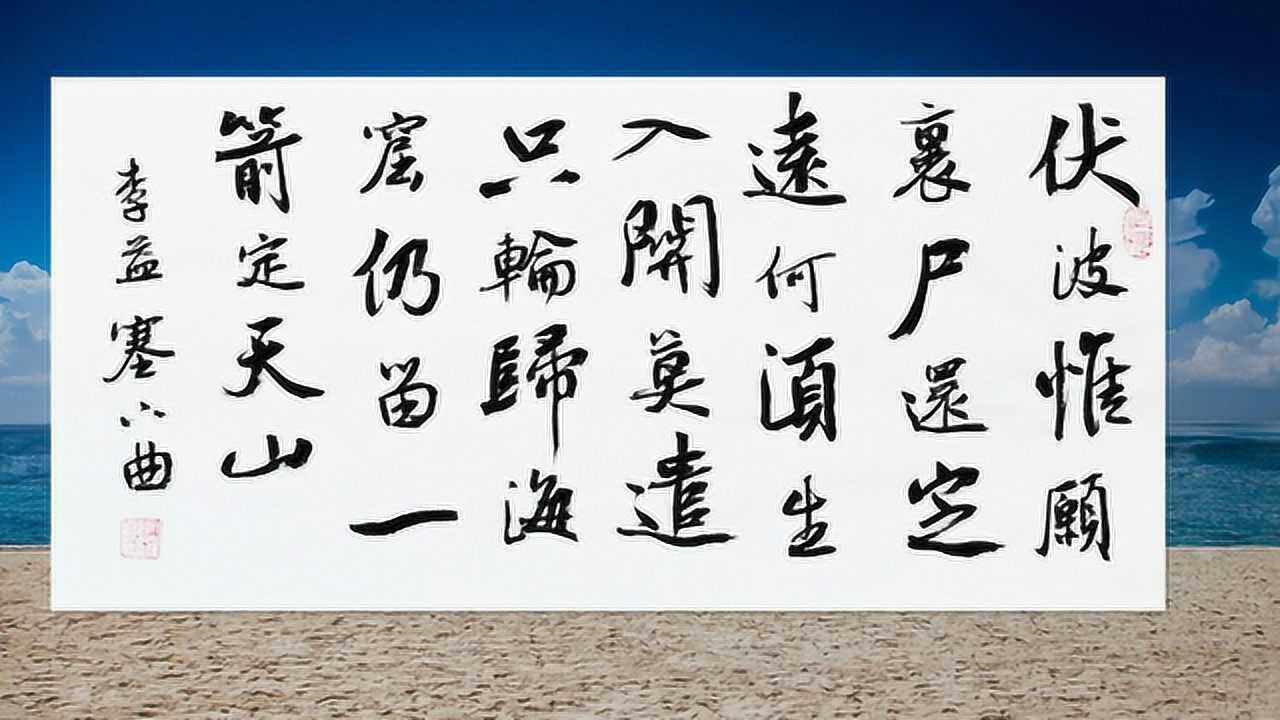 伏波惟願
裹尸還定
遠何須生
入關莫遣
只輪歸海
窟仍留一
箭定天山
李益塞下曲